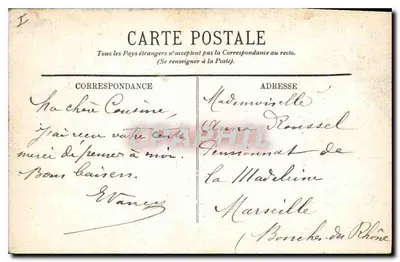 I
CARTE POSTALE
Tous les Pays étrangers n'acceptent pas la Correspondance au recto.
(Se renseigner à la Poste).
CORRESPONDANCE
Ma chère Cousine,
J'ai reçu votre carte
merci de penser à moi.
Bons baisers.
ADRESSE
Mademoiselle
Roussel
Pensionnat de
la Madeleine
Marseille
Bouches-du-Rhône